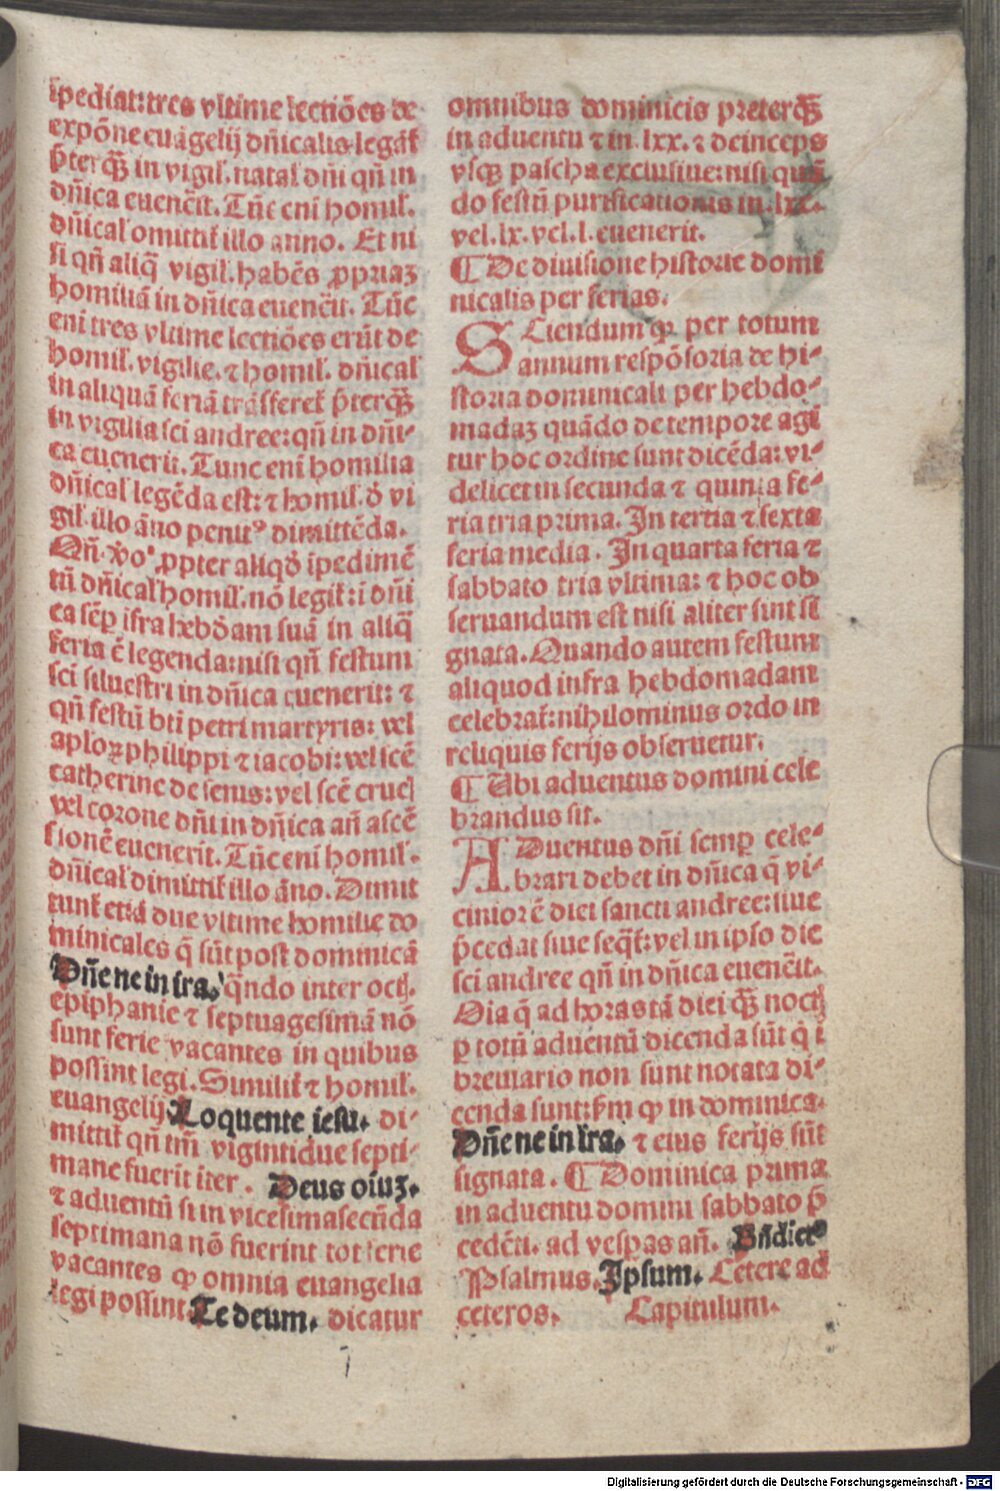 ipediat: tres vltime lectiões de
expõne euãgelij dñicalis legãt᷑
p̄ter q̃ꝫ in vigil. natal dñi qñ in
dñica euenẽit. Tũc eni homil.
dñical omittit᷑ illo anno. Et ni
si qñ aliq̃ vigil. habẽs ꝓpriaꝫ
homiliã in dñica euenẽit. Tũc
eni tres vltime lectiões erũt de
homil. vigilie. ⁊ homil. dñical
in aliquã feriã trãsferet᷑ p̄terq̃ꝫ
in vigilia sci andree: qñ in dñi-
ca euenerit. Tunc eni homilia
dñical legẽda est: ⁊ homil. d̕ vi
gil. illo ãno penitꝰ dimittẽda.
Qñ. v̕oꝰ ꝓpter aliqd̕ ipedimẽ
tũ dñical homil. nõ legit᷑: i dñi
ca sẽp ifra hebd̕am suã in aliq̃
feria ẽ legenda: nisi qñ festum
sci siluestri in dñica euenerit: ⁊
qñ festũ bti petri martyris: vel
aploꝝ philippi ⁊ iacobi: vel scẽ
catherine de senis: vel scẽ crucꝭ
vel corone dñi in dñica añ ascẽ
sionẽ euenerit. Tũc eni homil.
dñical dimittit᷑ illo ãno. Dimit
tunt᷑ etiã due vltime homilie do
minicales q̃ sũt post dominicã
Dñe ne in ira. q̃ndo inter octꝭ.
epiphanie ⁊ septuagesimã nõ
sunt ferie vacantes in quibus
possint legi. Similit᷑ ⁊ homil.
euangelij Loquente iesu. di-
mittit᷑ qñ tm̃ vigintidue septi-
mane fuerit iter. Deus oĩuꝫ.
⁊ aduentũ si in vicesimasecũda
septimana nõ fuerint tot ferie
vacantes ꝙ omnia euangelia
legi possint. Te deum. dicatur
omnibus dominicis preterq̃ꝫ
in aduentu ⁊ in .lxx. ⁊ deinceps
vsqꝫ pascha exclusiue: nisi quã
do festũ purificationis in .lxx.
vel .lx. vel .l. euenerit.
¶ De diuisione historie domi
nicalis per ferias.
SCiendum ꝙ per totum
annum respõsoria de hi-
storia dominicali per hebdo-
madaꝫ quãdo de tempore agi
tur hoc ordine sunt dicẽda: vi-
delicet in secunda ⁊ quinta fe-
ria tria prima. In tertia ⁊ sexta
feria media. In quarta feria ⁊
sabbato tria vltima: ⁊ hoc ob
seruandum est nisi aliter sint si
gnata. Quando autem festum
aliquod infra hebdomadam
celebrat᷑: nihilominus ordo in
reliquis ferijs obseruetur.
¶ Ubi aduentus domini cele
brandus sit.
ADuentus dñi semꝑ cele-
brari debet in dñica q̃ vi-
cinior ẽ diei sancti andree: siue
p̄cedat siue seq̃t᷑: vel in ipso die
sci andree qñ in dñica euenẽit.
Oia q̃ ad horas tã diei q̃ꝫ noctꝭ
ꝑ totũ aduentũ dicenda sũt q̃ i
breuiario non sunt notata di-
cenda sunt: fm ꝙ in dominica.
Dñe ne in ira. ⁊ eius ferijs sũt
signata. ¶ Dominica prima
in aduentu domini sabbato p̄
cedẽti. ad vesꝑas añ. Bñdictꝰ
Psalmus. Ipsum. Cetere ad
ceteros. Capitulum.
Digitalisierung gefördert durch die Deutsche Forschungsgemeinschaft - DFG